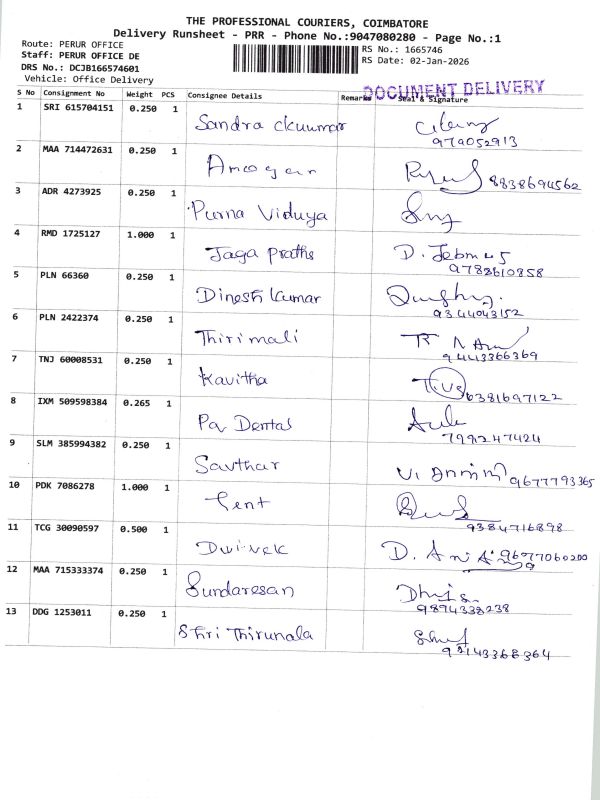 THE PROFESSIONAL COURIERS, COIMBATORE
Delivery Runsheet - PRR - Phone No.:9047080280 - Page No.:1
Route: PERUR OFFICE
RS No.: 1665746
Staff: PERUR OFFICE DE
RS Date: 02-Jan-2026
DRS No.: DCJB166574601
Vehicle: Office Delivery
DOCUMENT DELIVERY
S No Consignment No Weight PCS Consignee Details Remarks Seal & Signature
1 SRI 615704151 0.250 1 Sandra
979052913
2 MAA 714472631 0.250 1
8838694562
3 ADR 4273925 0.250 1 Purna Viduya
4 RMD 1725127 1.000 1 Jaga praths
9788610858
5 PLN 66360 0.250 1 Dinesh kumar
9344043152
6 PLN 2422374 0.250 1 Thirimali
9443366369
7 TNJ 60008531 0.250 1 Kavitha
6381697122
8 IXM 509598384 0.265 1 Pa Dental
799247424
9 SLM 385994382 0.250 1 Savthar
9677793365
10 PDK 7086278 1.000 1
9384716898
11 TCG 30090597 0.500 1 D.
12 MAA 715333374 0.250 1 Sundaresan
9894338238
13 DDG 1253011 0.250 1 Shri Thirunala